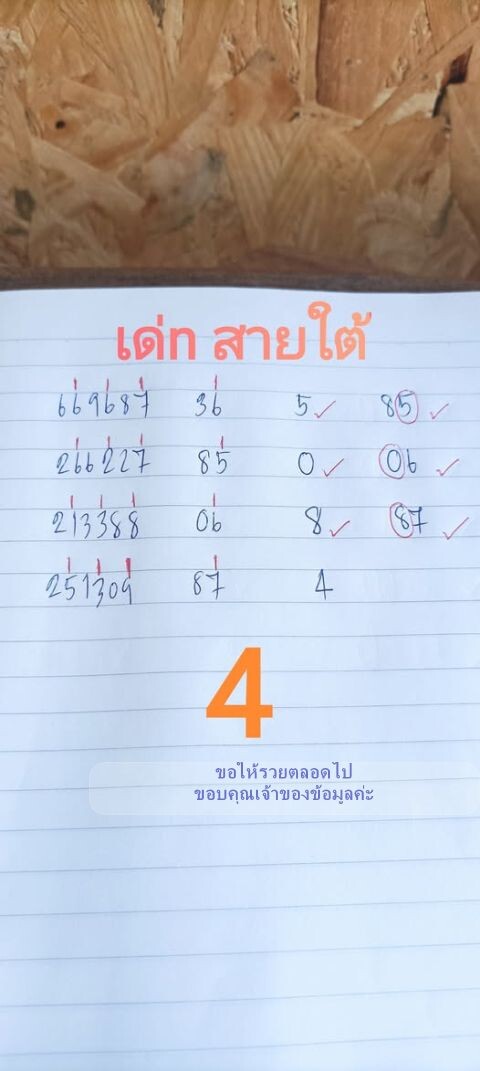 เด่น สายใต้
669687 36 5 85
266227 85 0 06
213388 06 8 87
251309 87 4
4
ขอให้รวยตลอดไป
ขอบคุณเจ้าของข้อมูลค่ะ